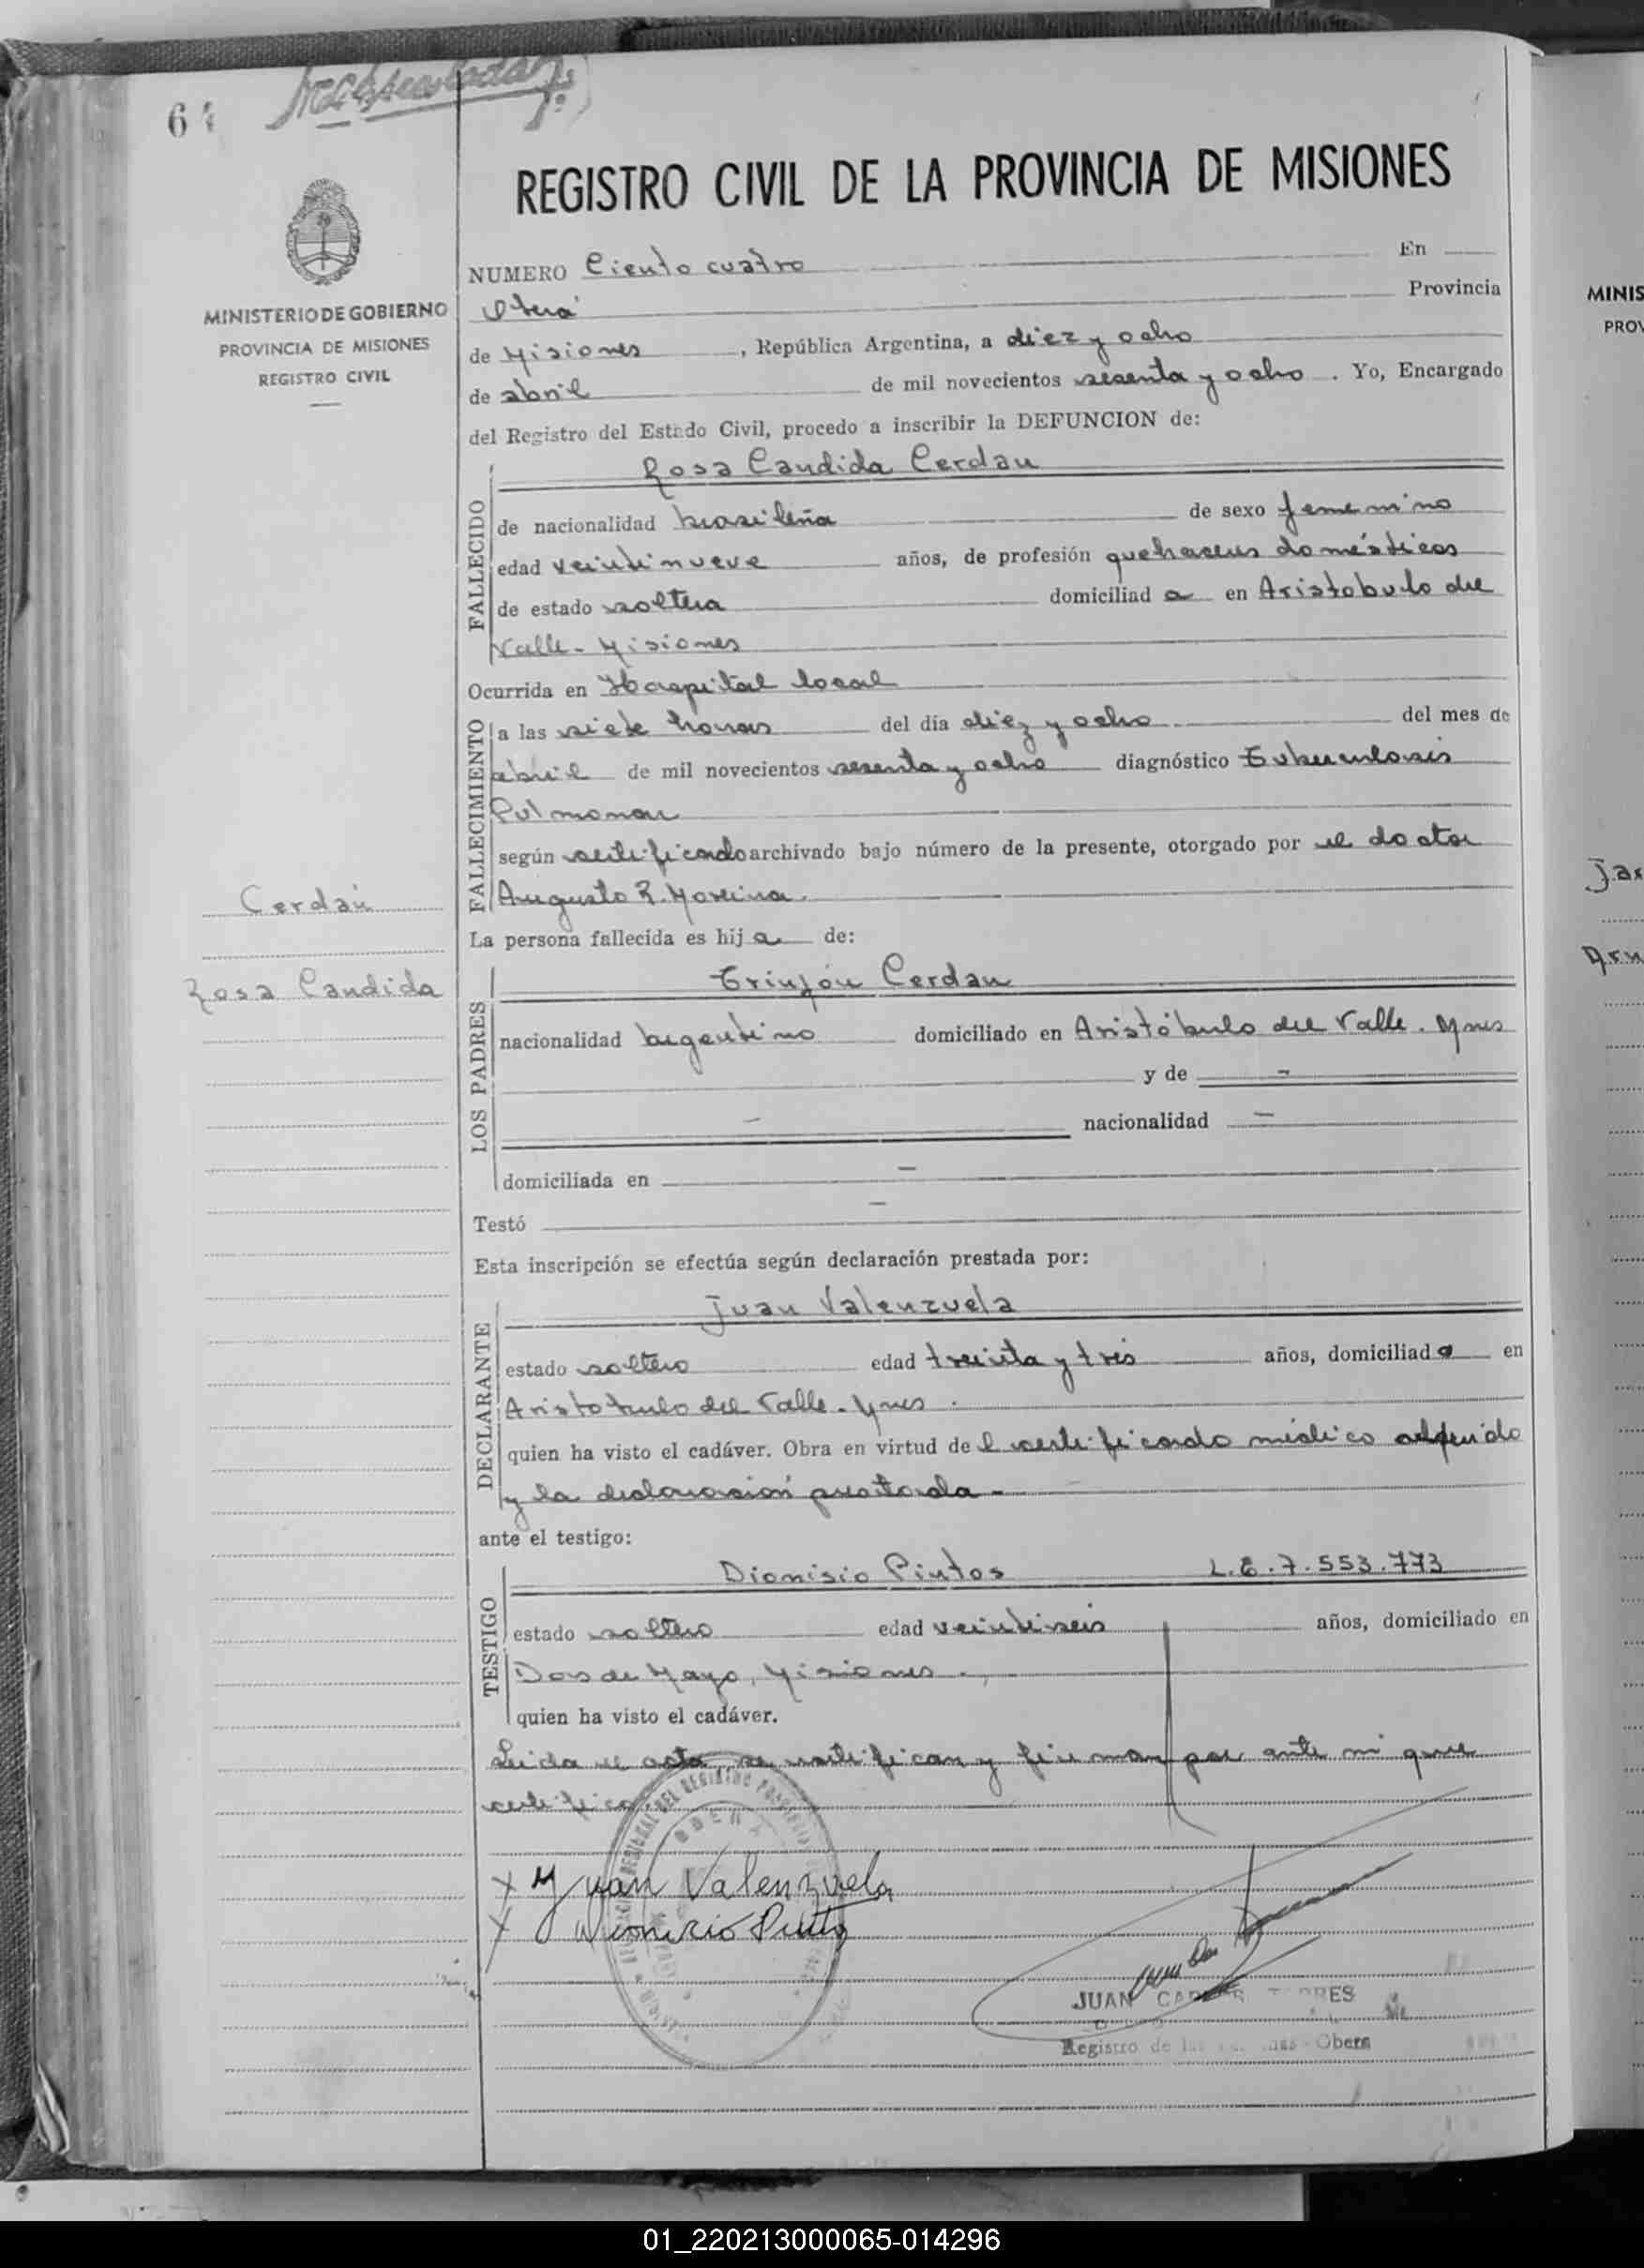 6
REGISTRO CIVIL DE LA PROVINCIA DE MISIONES
MINISTERIO DE GOBIERNO
PROVINCIA DE MISIONES
REGISTRO CIVIL
NUMERO Ciento cuatro En
Oberá Provincia
de Misiones, República Argentina, a diez y ocho
de abril de mil novecientos sesenta y ocho. Yo, Encargado
del Registro del Estado Civil, procedo a inscribir la DEFUNCION de:
Rosa Candida Cerdan
FALLECIDO
de nacionalidad brasileña de sexo femenino
edad veintinueve años, de profesión quehaceres domésticos
de estado soltera domiciliad a en Aristobulo del
Valle - Misiones
Ocurrida en Hospital local
FALLECIMIENTO
a las siete horas del día diez y ocho del mes de
abril de mil novecientos sesenta y ocho diagnóstico Tuberculosis
Pulmonar
según certificado archivado bajo número de la presente, otorgado por el doctor
Augusto R. Moreira.
Cerdan
Rosa Candida
La persona fallecida es hij a de:
LOS PADRES
Trinjón Cerdan
nacionalidad argentino domiciliado en Aristóbulo del Valle. Mnes
y de -
- nacionalidad -
domiciliada en -
Testó -
Esta inscripción se efectúa según declaración prestada por:
DECLARANTE
Juan Valenzuela
estado soltero edad treinta y tres años, domiciliad o en
Aristobulo del Valle - Mnes.
quien ha visto el cadáver. Obra en virtud de l certificado médico
y la declaración prestada -
ante el testigo:
TESTIGO
Dionisio Pintos L.E. 7.553.773
estado soltero edad veintiseis años, domiciliado en
Dos de Mayo, Misiones.
quien ha visto el cadáver.
Leida el acta se ratifican y firman por ante mi que
certifico.
x Juan Valenzuela
x Dionicio Pinto
JUAN CARLOS TORRES
Registro de las - Obera
MINIS
PROV
Jas
01_220213000065-014296